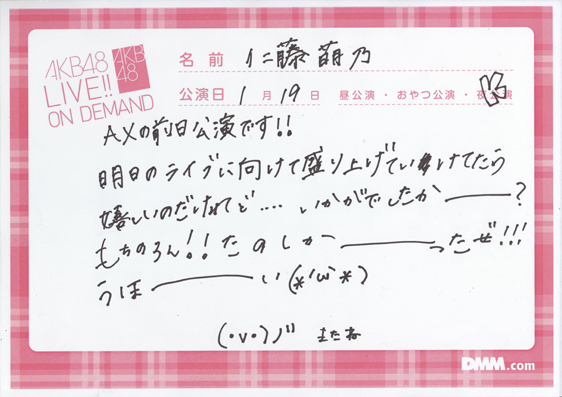 AKB48
LIVE!!
ON DEMAND
AKB
48
名前 仁藤萌乃
公演日 1月19日 昼公演・おやつ公演・夜公演
AXの前日公演です!!
明日のライブに向けて盛り上げていけてたら
嬉しいのだけれど.... いかがでしたか――?
もちのろん!! たのしか――――ったぜ!!!
うほ――――い (*'ω'*)
(・v・)ノ" またね
DMM.com